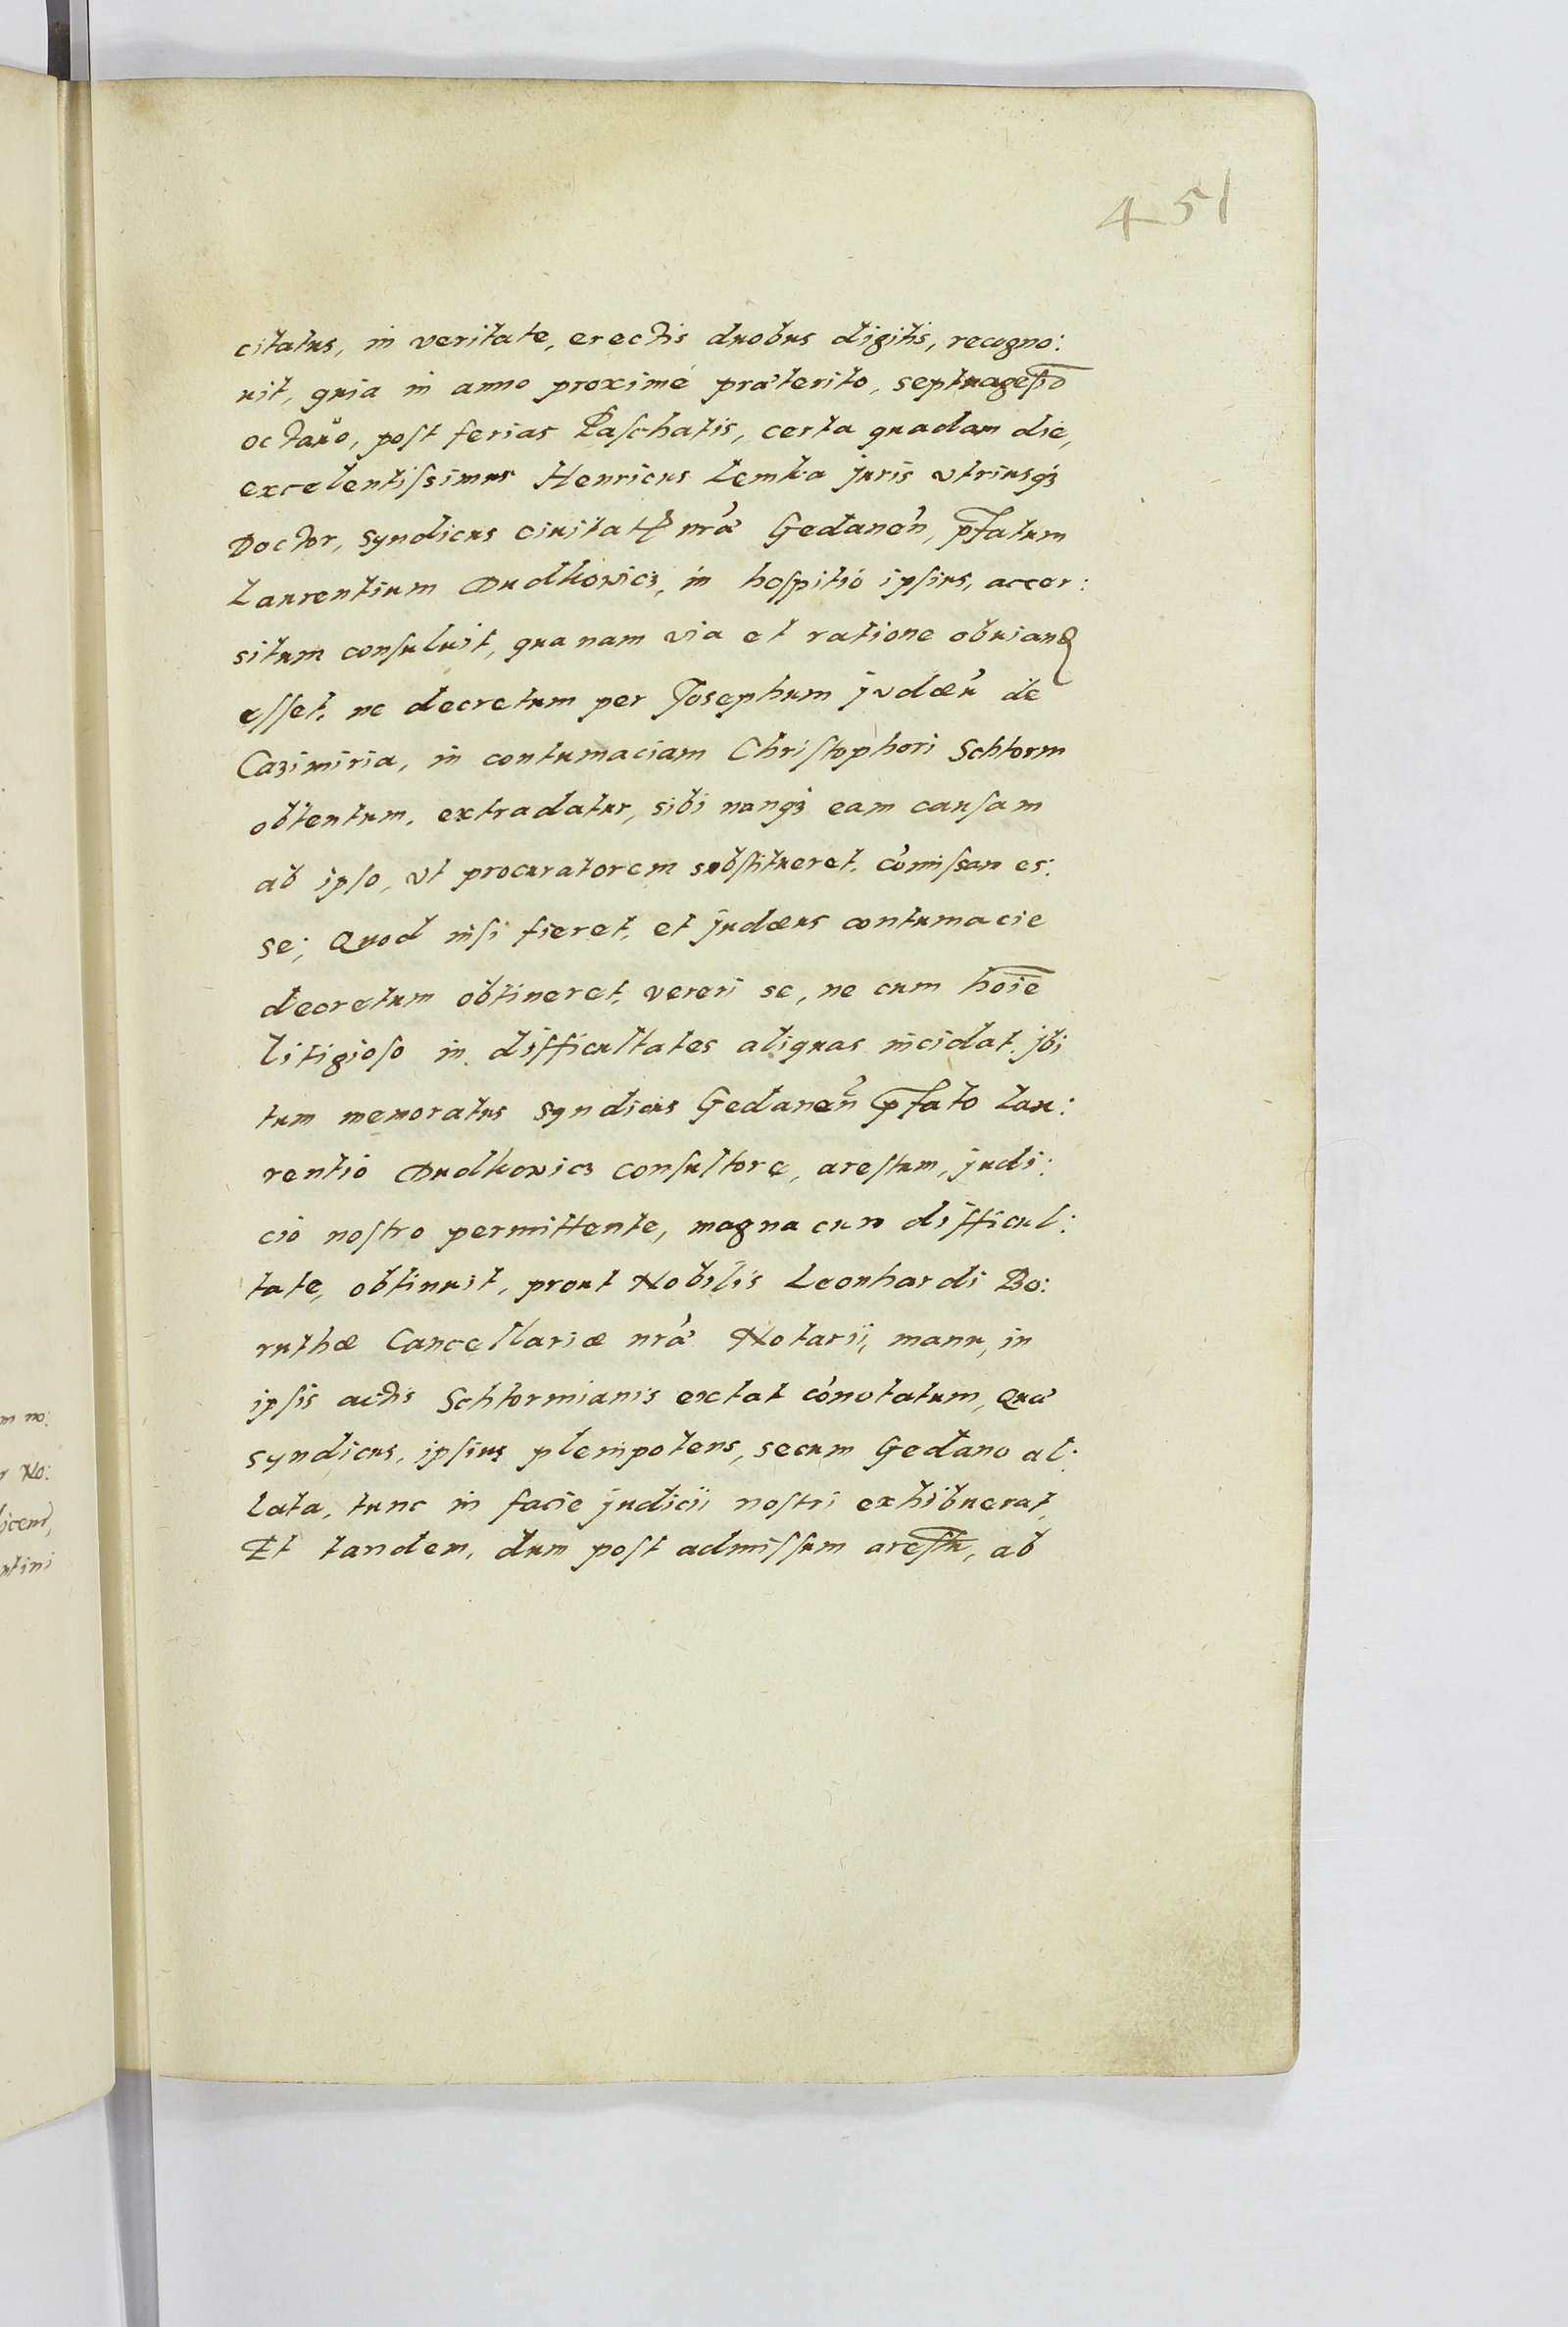 451
citatus, in veritate, erectis duobus digitis, recogno:
uit, quia in anno proximé præterito, septuagesīo
octauo, post ferias Paschatis, certa quadam die,
excelentissimus Henricus Lemka juris vtriusq3
Doctor, syndicus ciuitat nrǽ Gedaneñ, p̄fatum
Laurentium Dudkowicz, in hospitió ipsius, accer:
situm consuluit, qua nam via et ratione obuiand
esset, ne decretum per Josephum judæū de
Cazimiria, in contumaciam Christophori Schtorm
obtentum, extradatur, sibi nanq3 eam causam
ab ipso, vt procuratorem substitueret, cōmissam es:
se; Quod nisi fieret, et judæus contumacie
decretum obtineret, vereri se, ne cum hoīe
litigioso in difficultates aliquas incidat. jbi
tum memoratus syndicus Gedaneñ p̄fato Lau:
rentió Dudkowicz consultore, arestum, judi:
ció nostro permittente, magna cum difficul:
tate, obtinuit, prout Nobilis Leonhardi Bo:
ruthæ Cancellariæ nrǽ Notarij, manu, in
ipsis actis Schtormianis extat cōnotatum, quæ
syndicus, ipsius plenipotens, secum Gedano al:
lata, tunc in facie judicij nostri exhibuerat,
Et tandem, dum post admissum arestū, ab
m no:
r No:
ntini